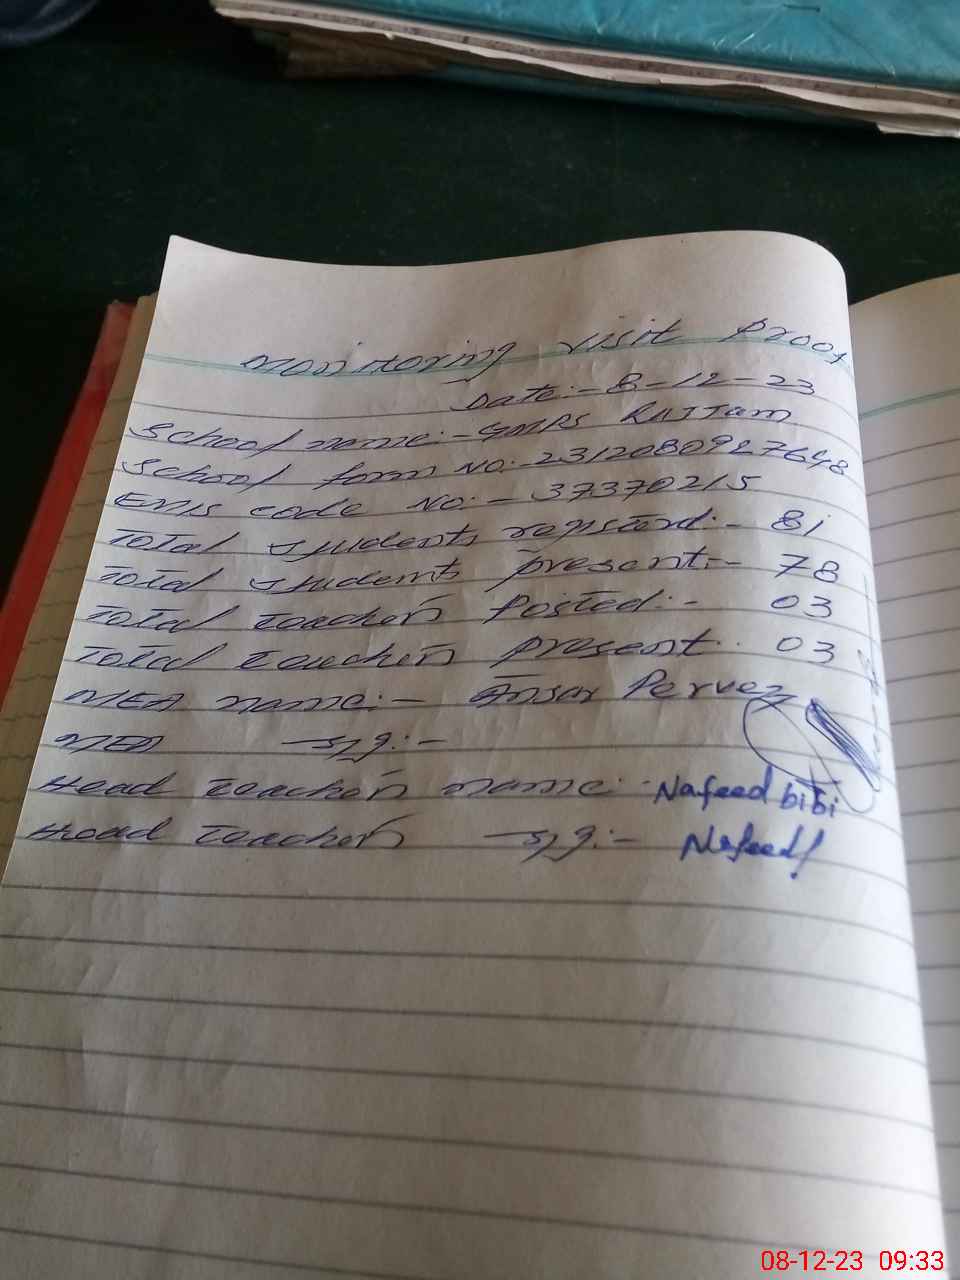 Monitoring visit Proof
Date:- 8-12-23
School name:- GMPS
School form No:-2312080927648
EMIS code No:- 37370215
Total students registerd:- 81
Total students present:- 78
Total teachers Posted:- 03
Total teachers present:- 03
MEA name:- Ansar Pervez
MEA sig:-
Head teacher name:- Nafeed bibi
Head teacher sig:- Nafeed
08-12-23 09:33